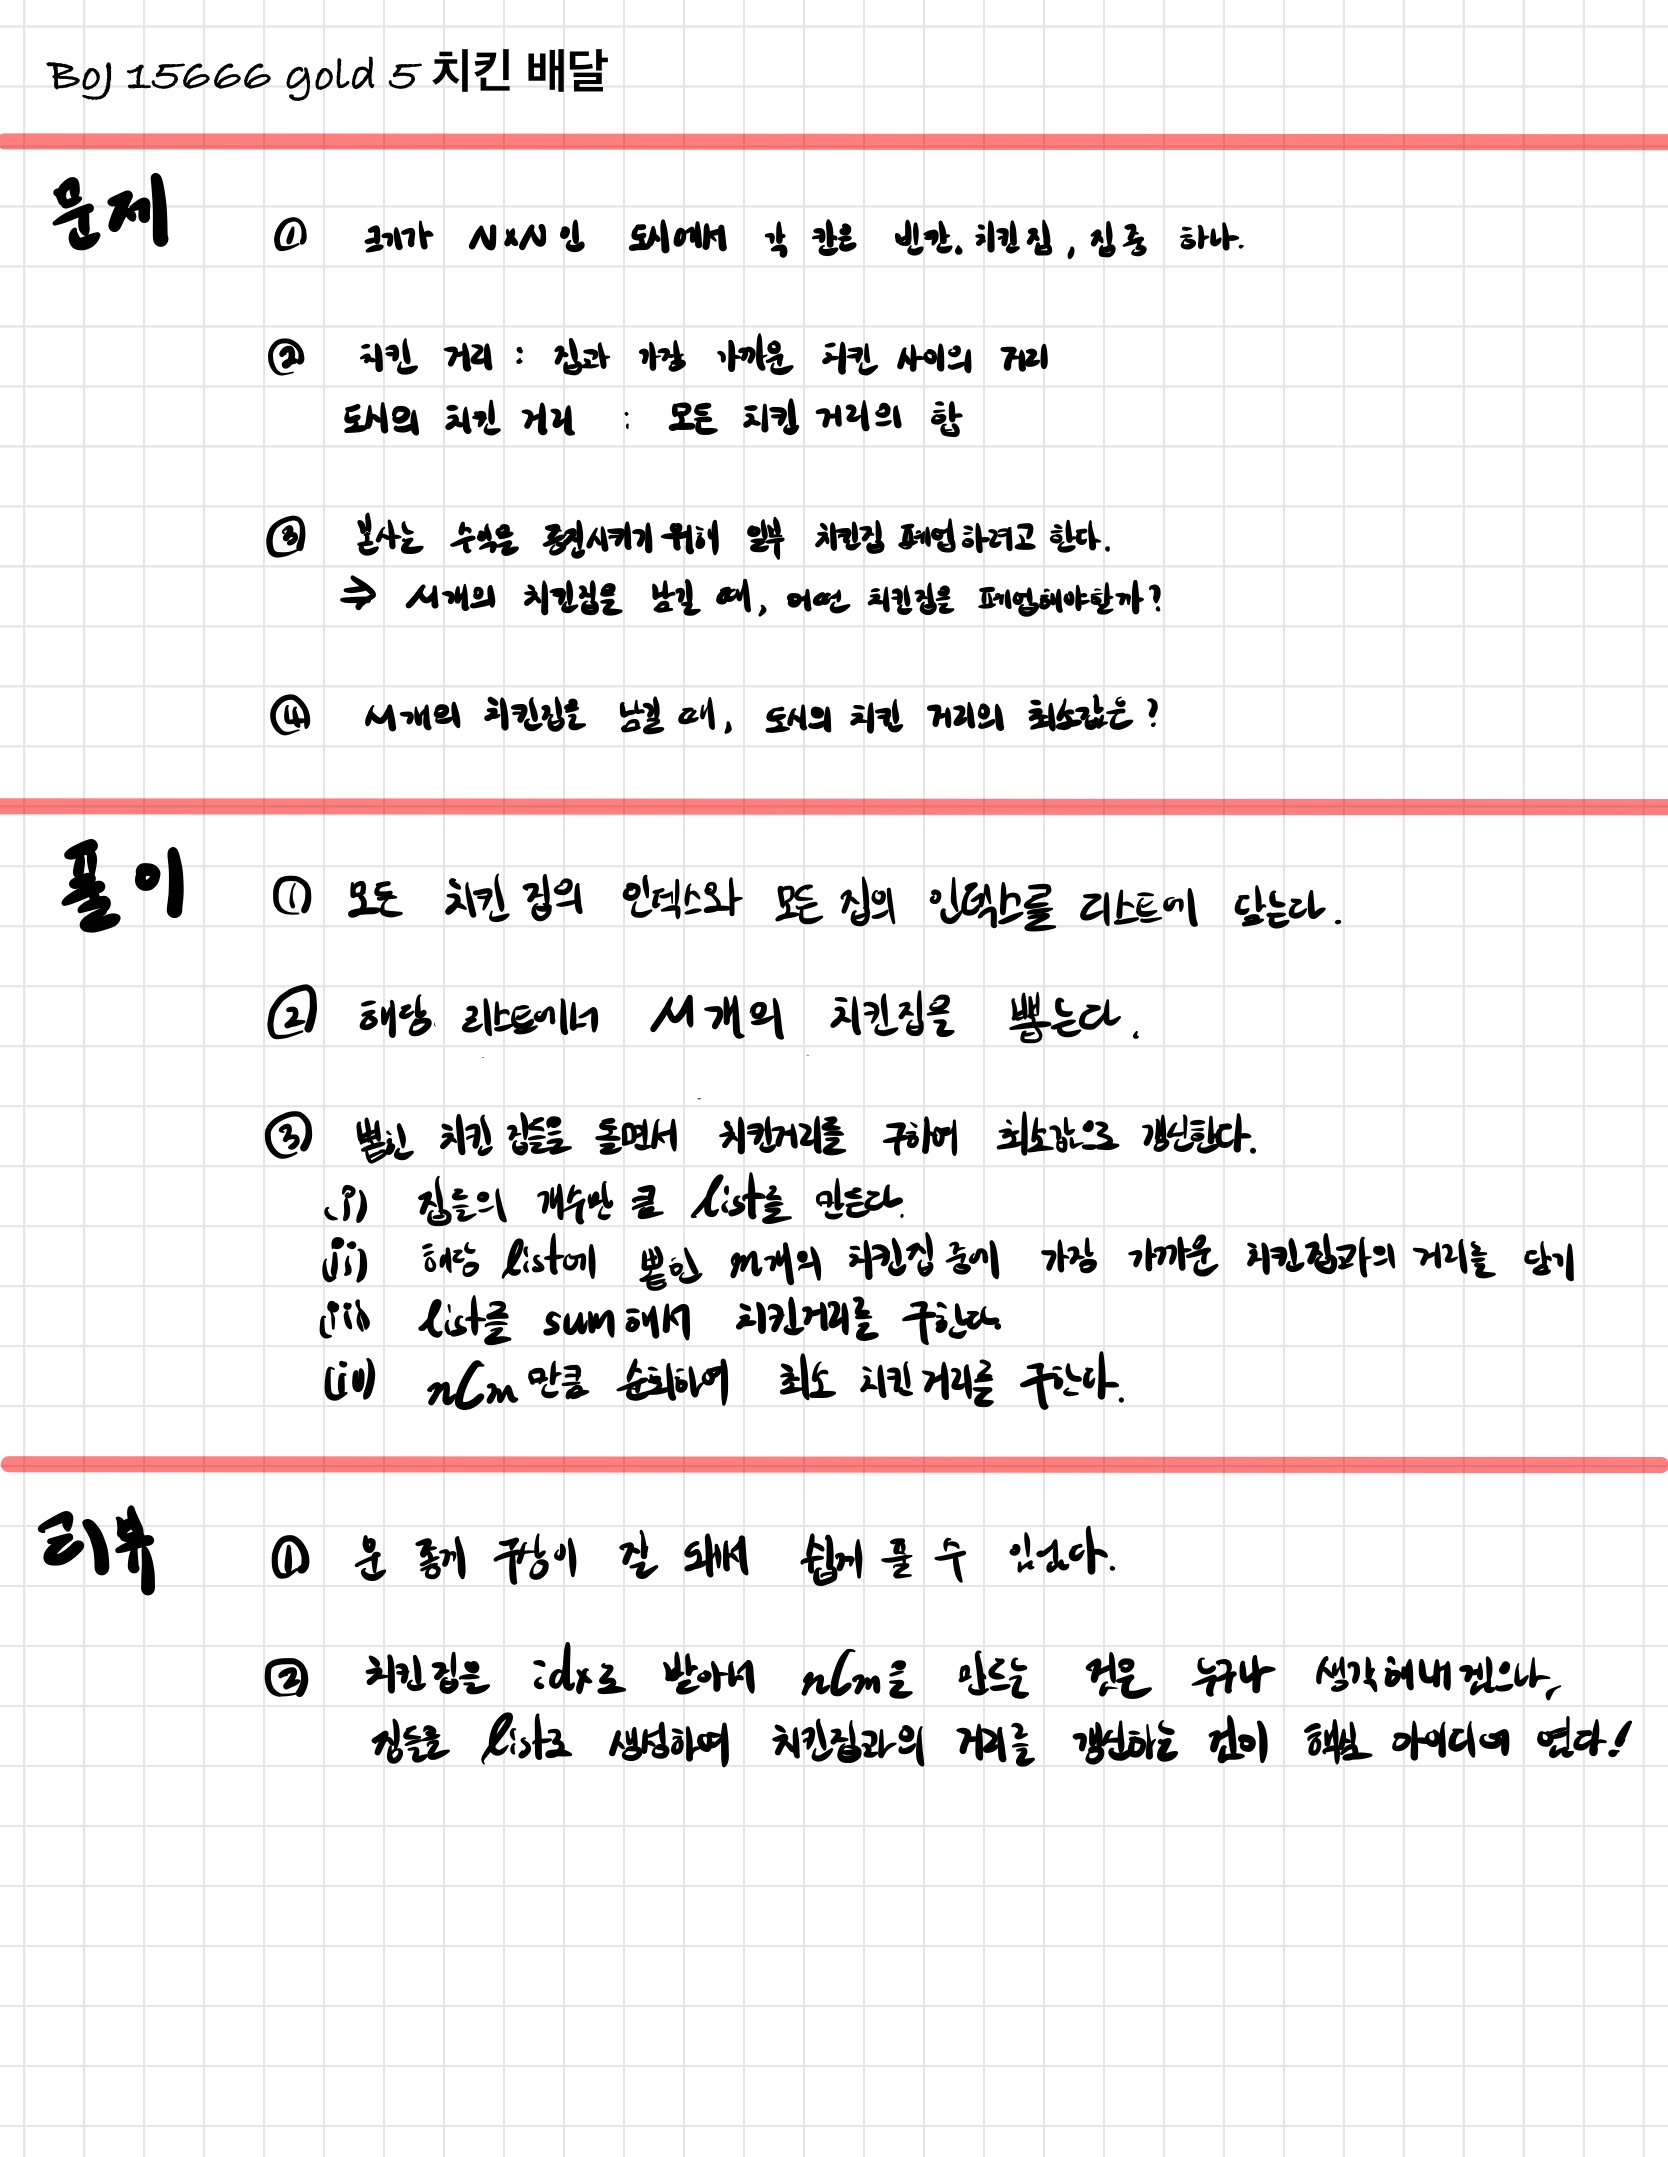 BOJ 15666 gold 5 치킨 배달
문제
① 크기가 N×N인 도시에서 각 칸은 빈칸, 치킨집, 집 중 하나.
② 치킨 거리 : 집과 가장 가까운 치킨 사이의 거리
도시의 치킨 거리 : 모든 치킨 거리의 합
③ 본사는 수익을 증진시키기 위해 일부 치킨집 폐업하려고 한다.
⇒ M개의 치킨집을 남길 때, 어떤 치킨집을 폐업해야할까?
④ M개의 치킨집을 남길 때, 도시의 치킨 거리의 최소값은?
풀이
① 모든 치킨 집의 인덱스와 모든 집의 인덱스를 리스트에 담는다.
② 해당 리스트에서 M개의 치킨집을 뽑는다.
③ 뽑힌 치킨 집들을 돌면서 치킨거리를 구하여 최소값으로 갱신한다.
(i) 집들의 개수만큼 list를 만든다.
(ii) 해당 list에 뽑힌 m개의 치킨집 중에 가장 가까운 치킨집과의 거리를 담기
(iii) list를 sum해서 치킨거리를 구한다.
(iv) nCm 만큼 순회하여 최소 치킨거리를 구한다.
리뷰
① 운 좋게 구상이 잘 돼서 쉽게 풀 수 있었다.
② 치킨집을 idx로 받아서 nCm을 만드는 것은 누구나 생각해내겠으나,
집들을 list로 생성하여 치킨집과의 거리를 갱신하는 것이 핵심 아이디어 였다!